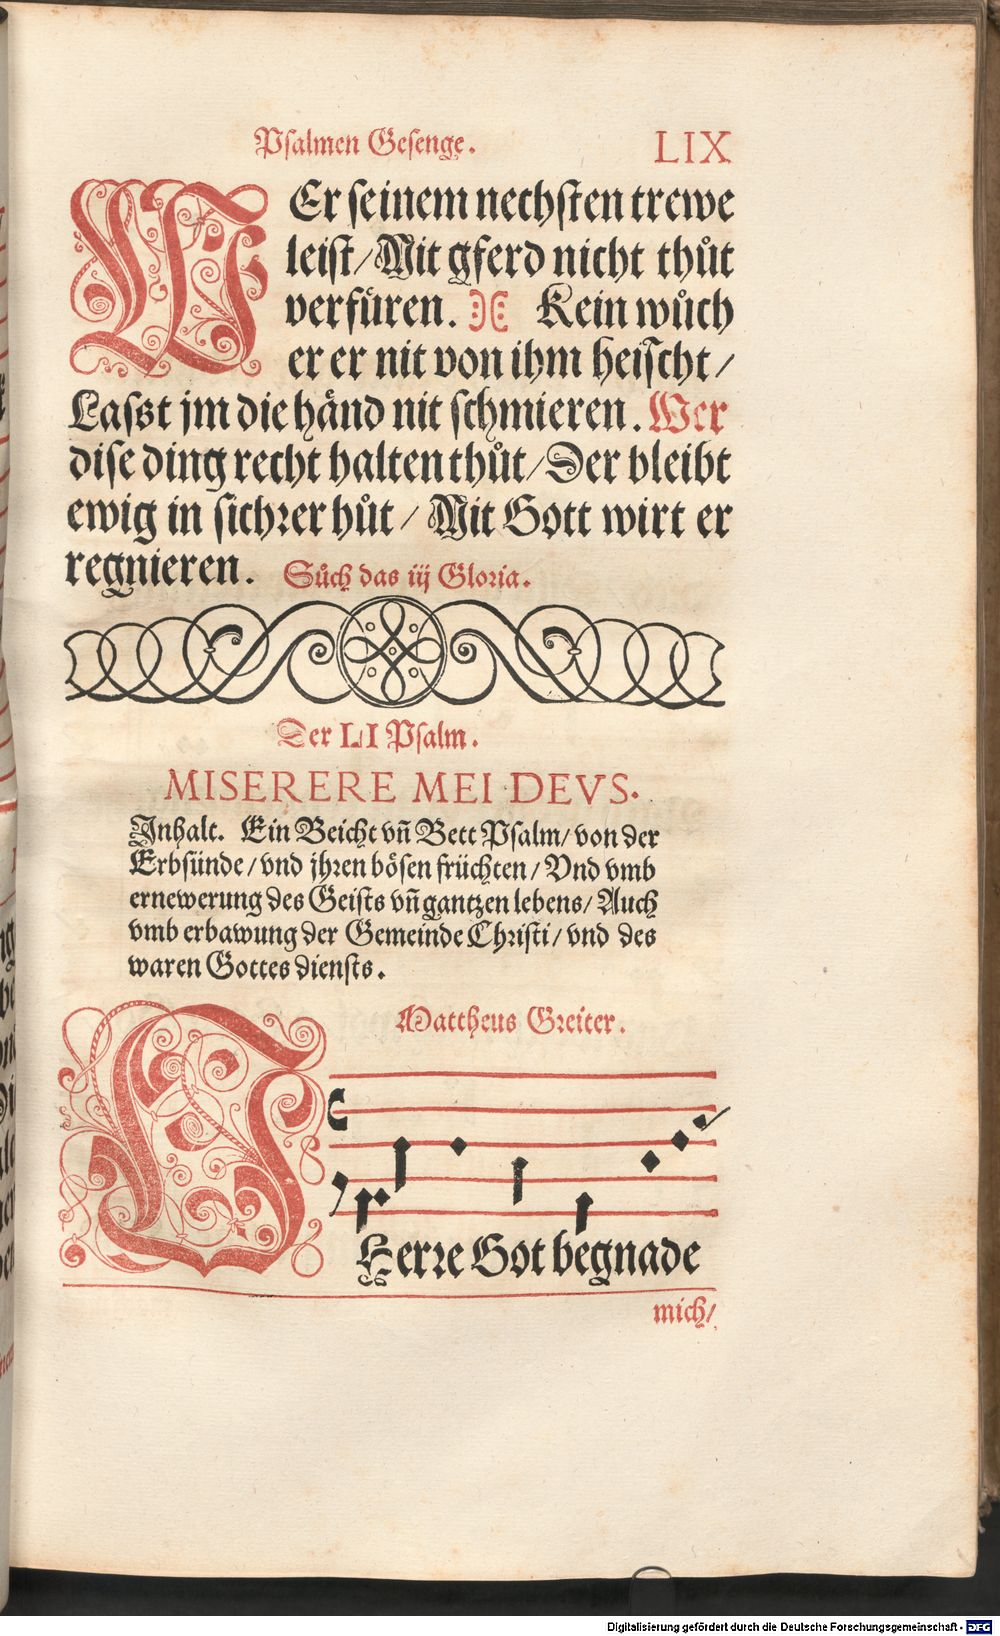 Psalmen Gesenge. LIX
WEr seinem nechsten trewe
leist/ Mit gferd nicht thůt
verfůren. Kein wůch
er er nit von ihm heischt/
Lasst jm die hånd nit schmieren. Wer
dise ding recht halten thůt/ Der bleibt
ewig in sichrer hůt/ Mit Gott wirt er
regnieren. Sůch das iij Gloria.
Der LI Psalm.
MISERERE MEI DEVS.
Inhalt. Ein Beicht vñ Bett Psalm/ von der
Erbsünde/ vnd jhren bösen früchten/ Vnd vmb
ernewerung des Geists vñ gantzen lebens/ Auch
vmb erbawung der Gemeinde Christi/ vnd des
waren Gottes diensts.
Mattheus Greiter.
O Herre Got begnade
mich/
Digitalisierung gefördert durch die Deutsche Forschungsgemeinschaft - DFG